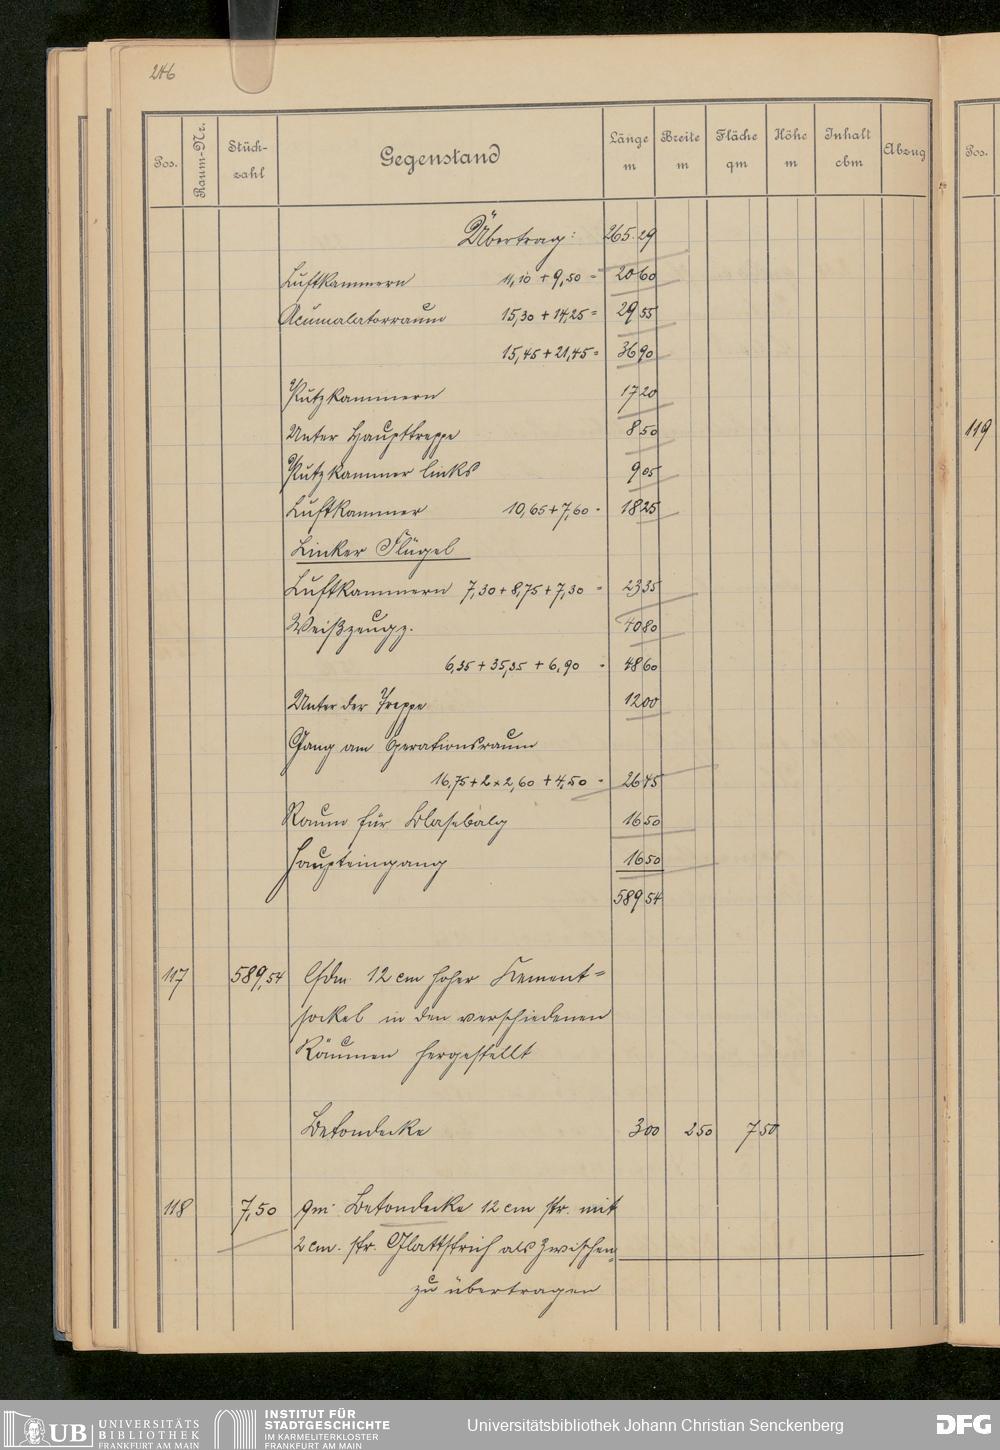 246
Pos. Raum-Nr. Stück-zahl Gegenstand Länge m Breite m Fläche qm Höhe m Inhalt cbm Abzug Pos.
Übertrag: 265.29
Luftkammern 11,10 + 9,50 = 20 60
Acumalatorraum 15,30 + 14,25 = 29 55
15,45 + 21,45 = 36 90
Putzkammern 17 20
Unter Haupttreppe 8 50
119
Putzkammer links 9 05
Luftkammer 10,65 + 7,60 = 18 25
Linker Flügel
Luftkammern 7,30 + 8,75 + 7,30 = 23 35
Weißzeugz. 40 80
6,35 + 35,35 + 6,90 = 48 60
Unter der Treppe 12 00
Gang am Operationsraum
16,75 + 2 x 2,60 + 4,50 = 26 45
Raum für Blasebalg 16 50
Haupteingang 16 50
589 54
117 589,54 lfdm 12 cm hoher Zement=
sockel in den verschiedenen
Räumen hergestellt
Betondecke 3 00 2 50 7 50
118 7,50 qm Betondecke 12 cm str. mit
2 cm. str. Glattstrich als Zwischen=
zu übertragen
UB UNIVERSITÄTS
BIBLIOTHEK
FRANKFURT AM MAIN
INSTITUT FÜR
STADTGESCHICHTE
IM KARMELITERKLOSTER
FRANKFURT AM MAIN
Universitätsbibliothek Johann Christian Senckenberg
DFG